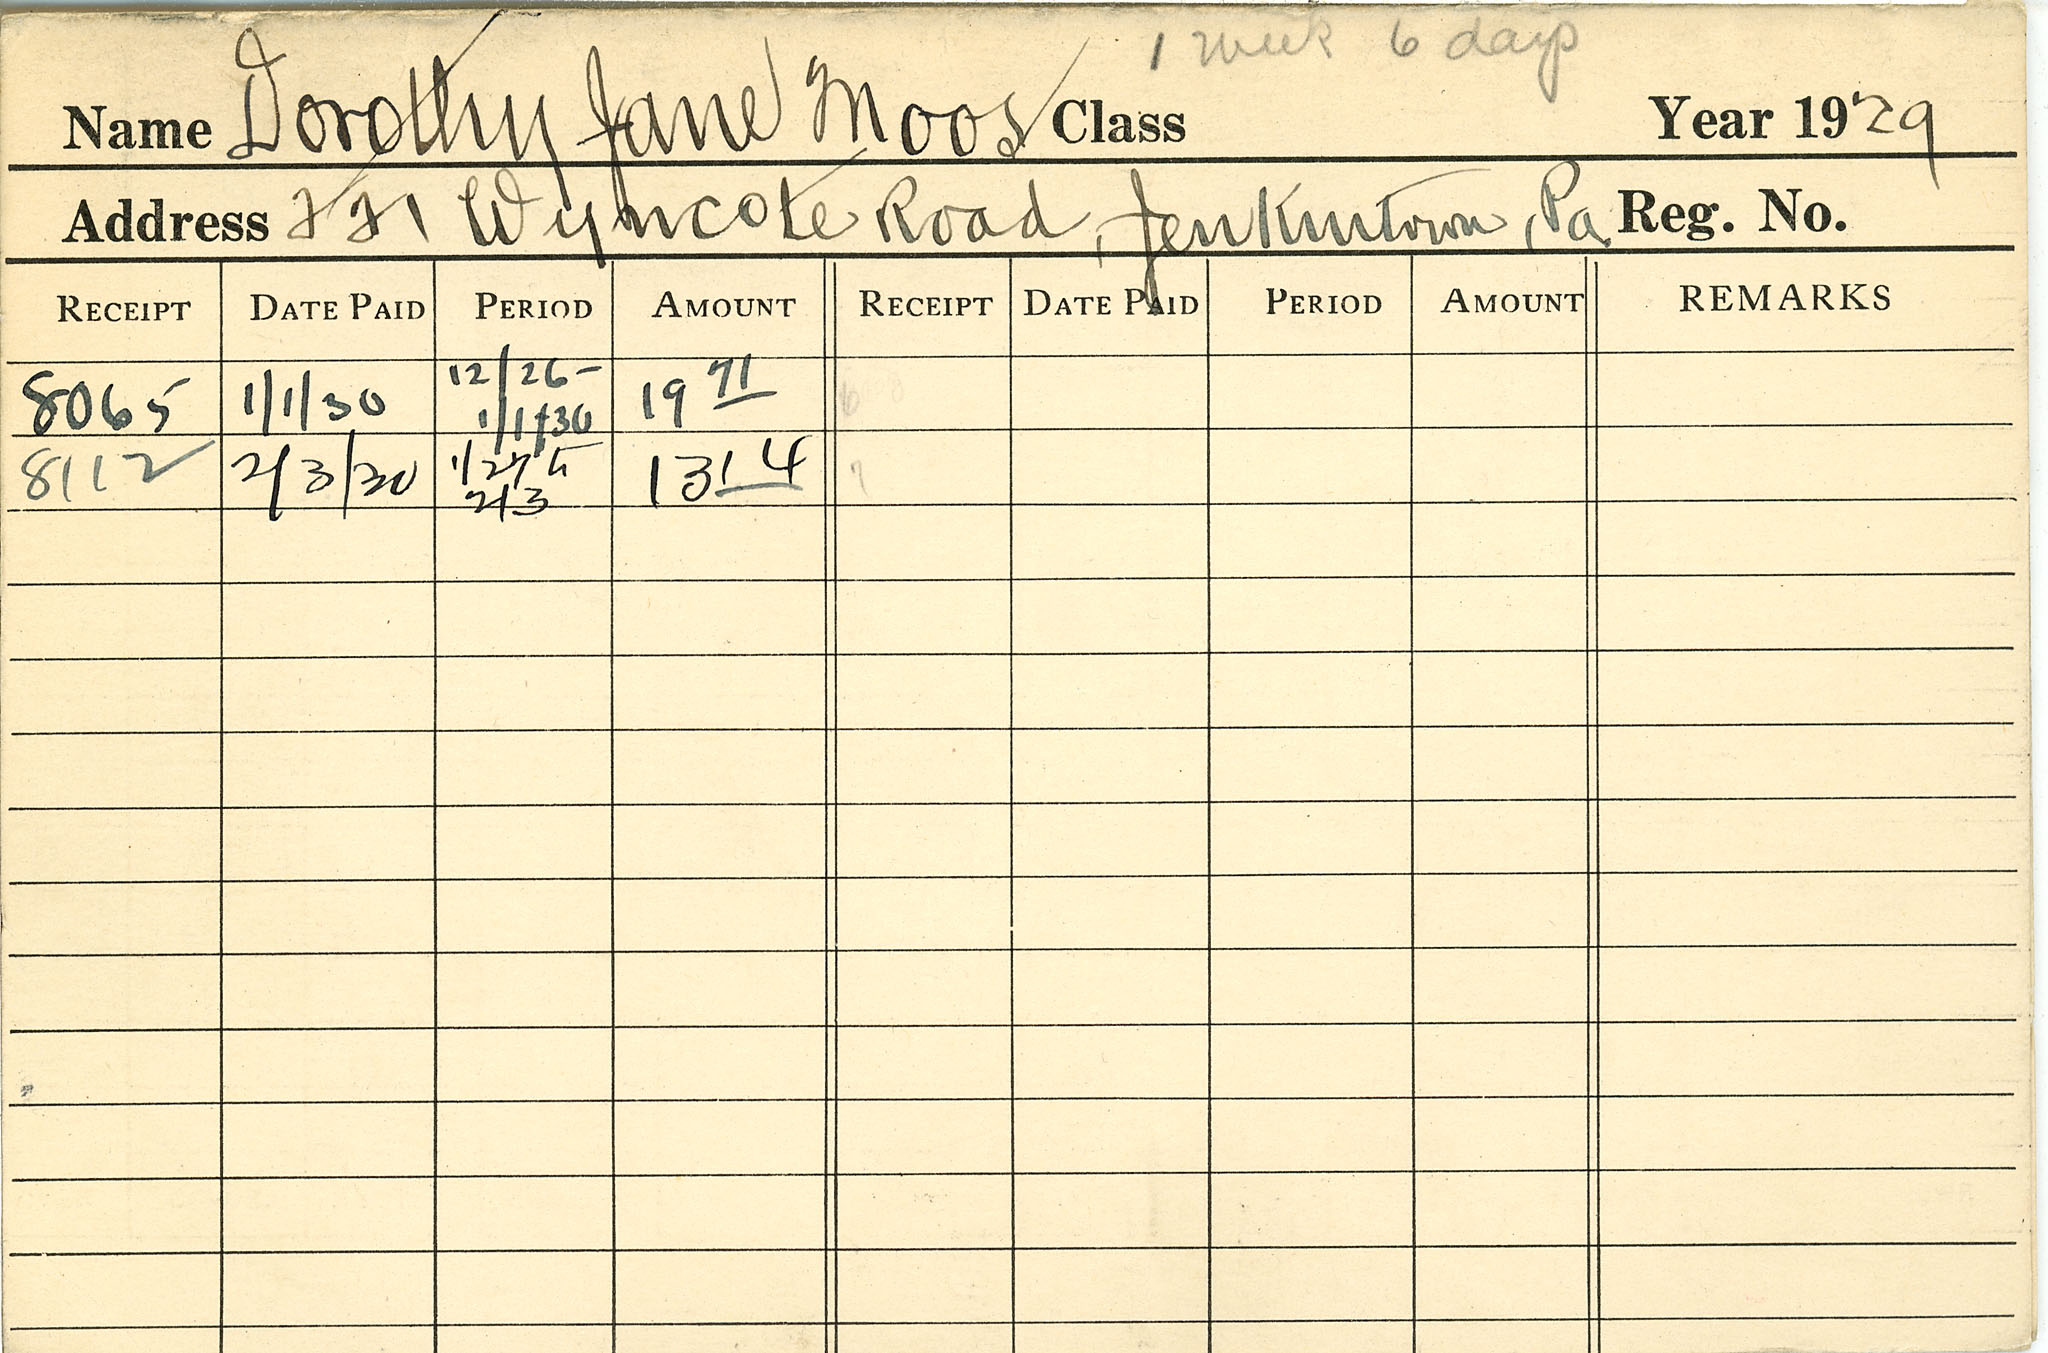 1 week 6 days
Name Dorothy Jane Moos Class Year 1929
Address 221 Wyncote Road, Jenkintown, Pa. Reg. No.
RECEIPT DATE PAID PERIOD AMOUNT RECEIPT DATE PAID PERIOD AMOUNT REMARKS
8065 1/1/30 12/26- 1/1/30 19 71
8112 2/3/30 1/27 2/3 13 14